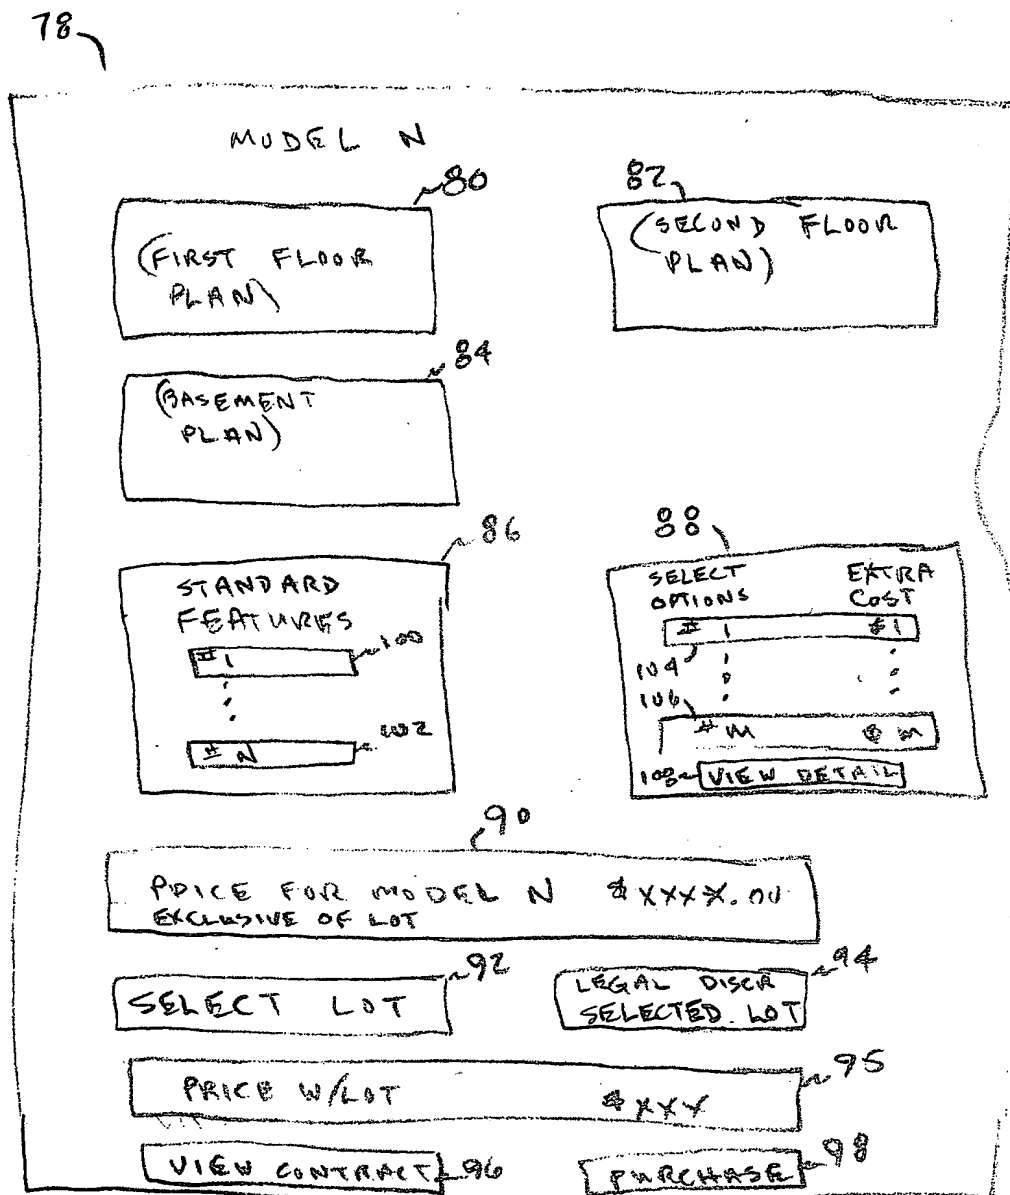 78
MODEL N
80
(FIRST FLOOR
PLAN)
82
(SECOND FLOOR
PLAN)
84
(BASEMENT
PLAN)
86
STANDARD
FEATURES
# 1 100
# N 102
88
SELECT EXTRA
OPTIONS COST
# 1 $ 1
104
106
# M $ M
108 VIEW DETAIL
90
PRICE FOR MODEL N $XXXX.00
EXCLUSIVE OF LOT
92
SELECT LOT
94
LEGAL DISCR
SELECTED LOT
95
PRICE W/LOT $XXX
VIEW CONTRACT 96
PURCHASE 98